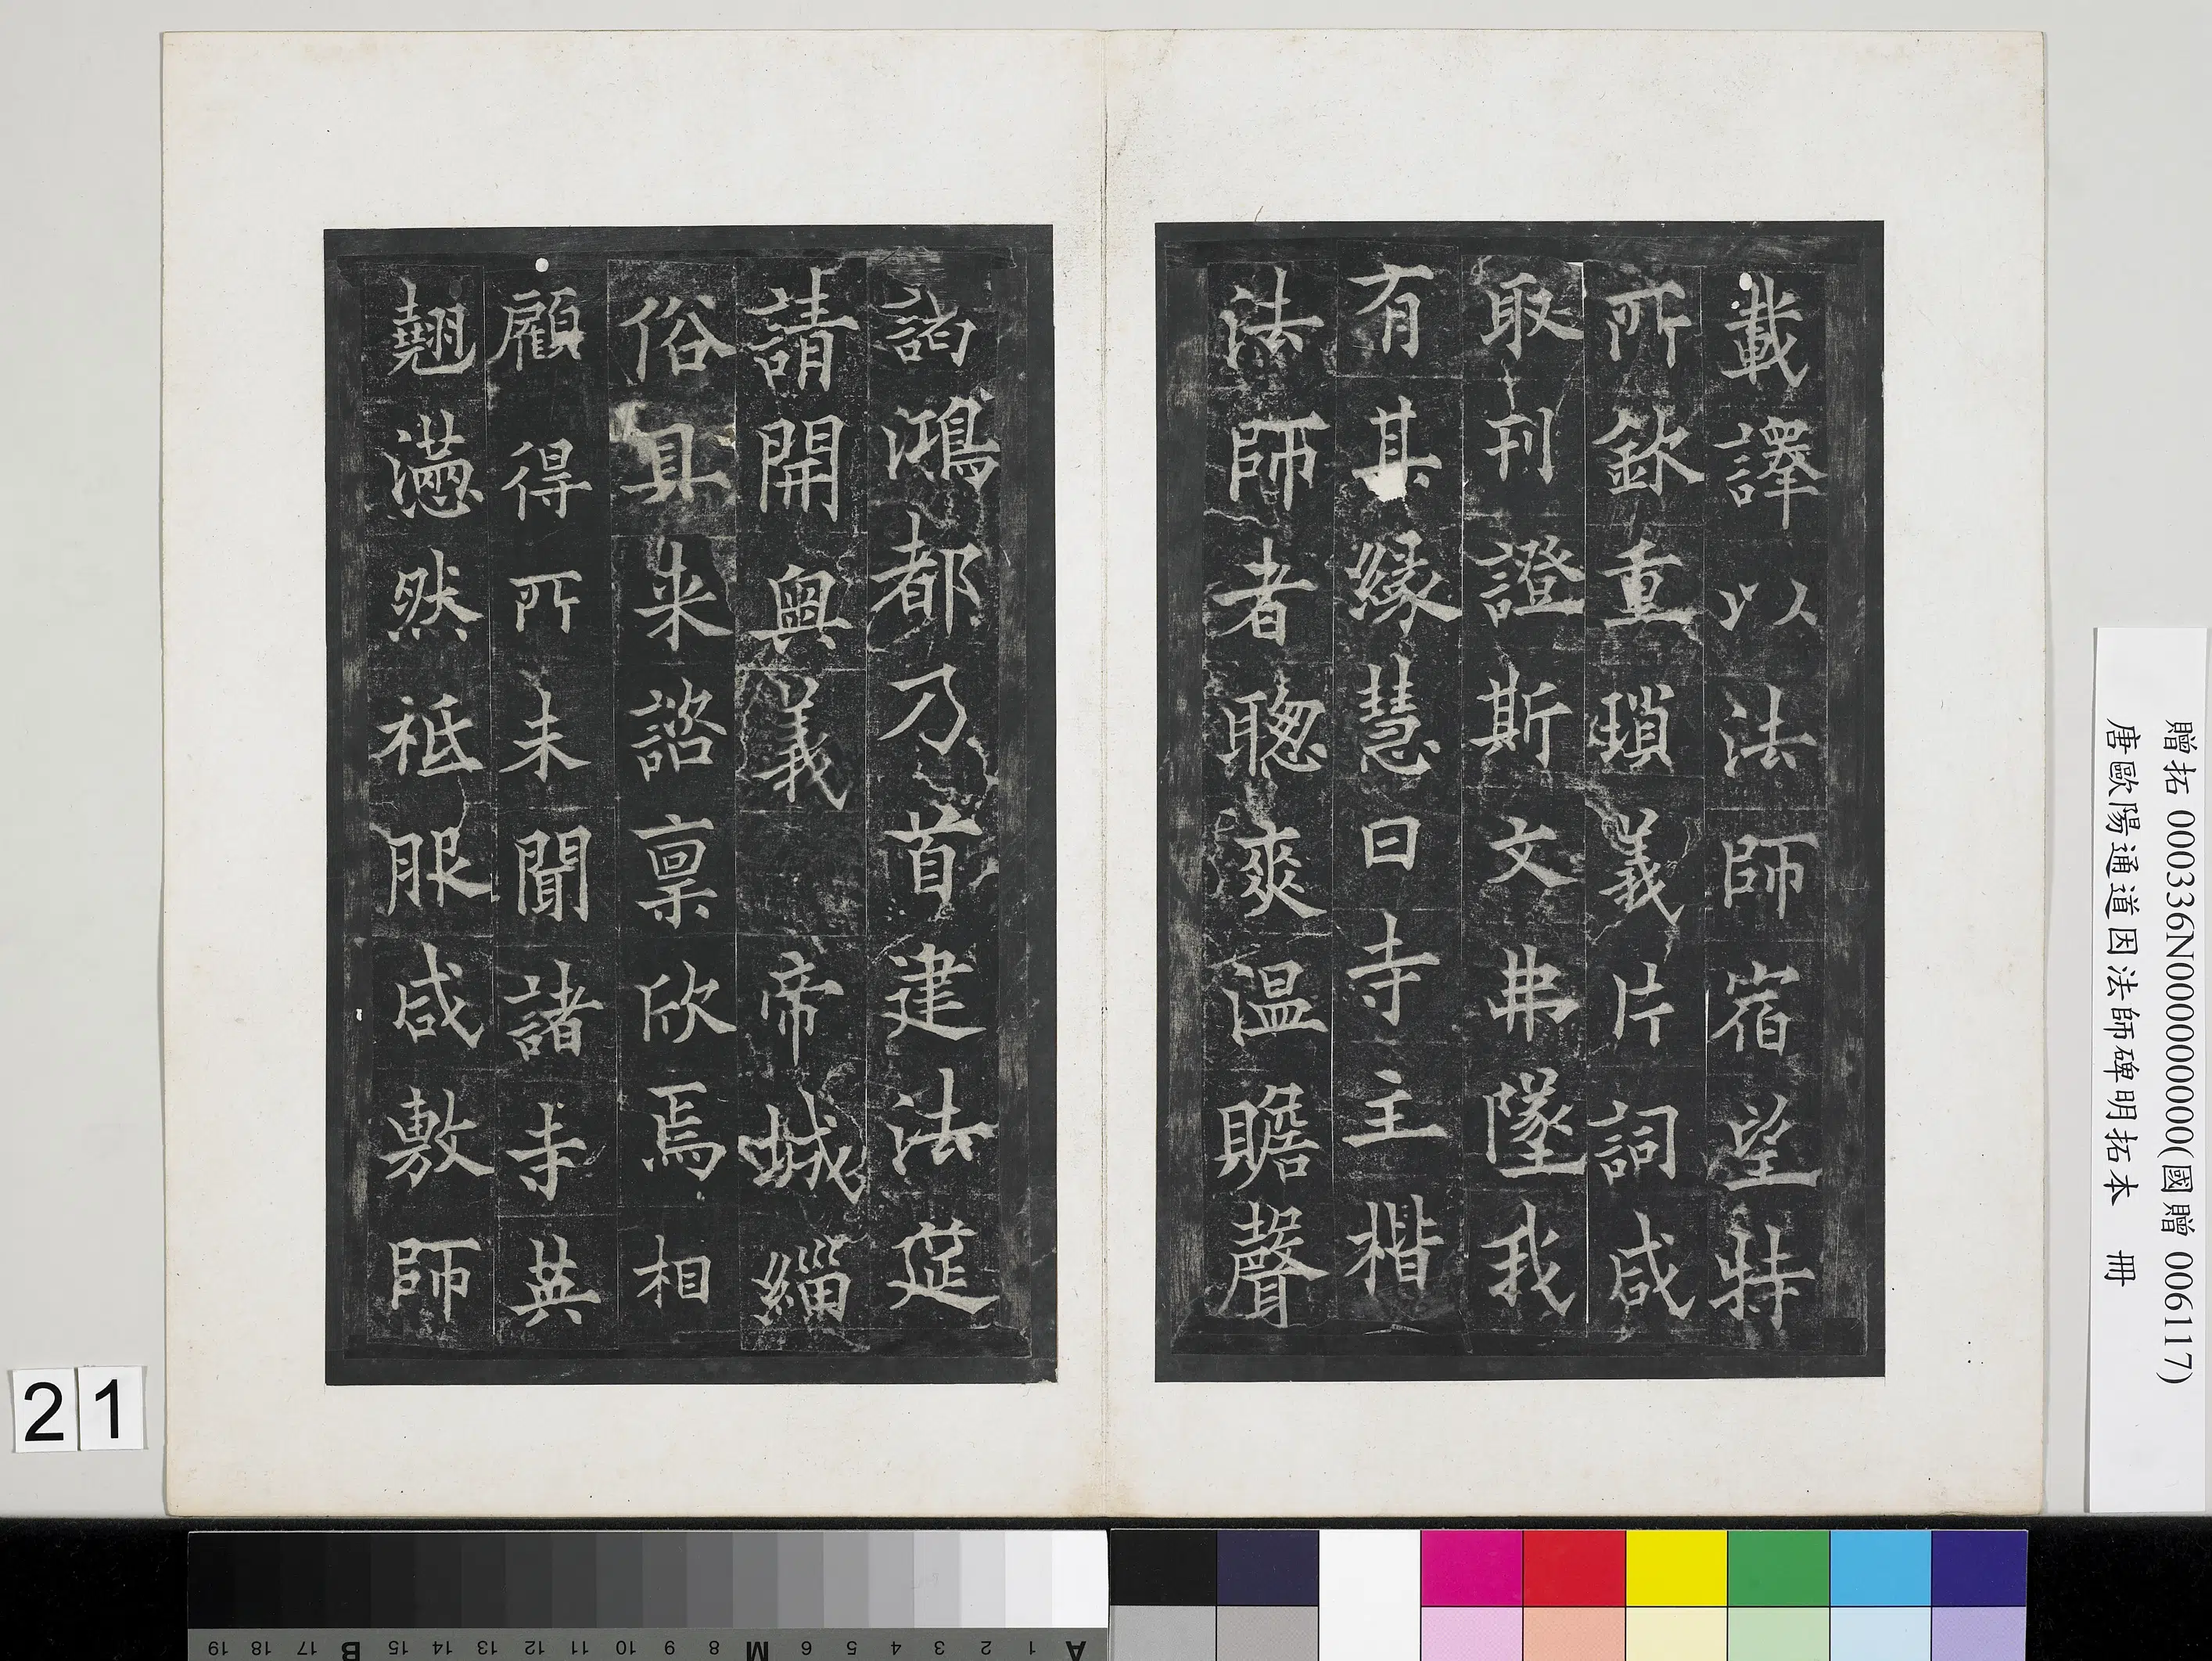 載譯以法師宿望特
所欽重瑣義片詞咸
取刊證斯文弗墜我
有其緣慧日寺主楷
法師者聰爽溫贍聲
諭鴻都乃首建法筵
請開奧義帝城緇
俗具来諮稟欣焉相
顧得所未聞諸寺英
翹懣然祗服咸敷師
贈拓 000336N000000000(國贈 006117)
唐歐陽通道因法師碑明拓本 冊
21
A 1 2 3 4 5 6 M 8 9 10 11 12 13 14 15 B 17 18 19